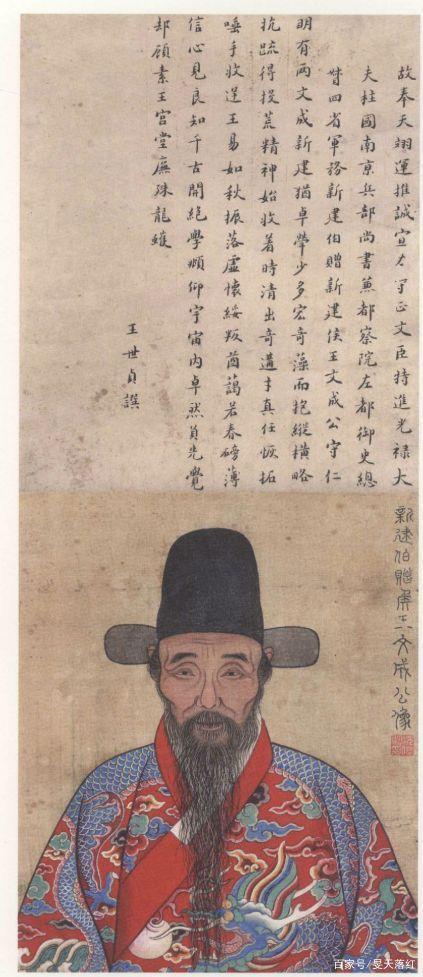 故奉天翊運推誠宣力守正文臣特進光祿大
夫柱國南京兵部尚書兼都察院左都御史總
督四省軍務新建伯贈新建侯王文成公守仁
明有两文成新建猶卓犖少多宏奇藻而抱縱橫略
抗疏得投荒精神始收着時清出奇遘才真任恢拓
唾手收逆王易如秋振落虛懷綏叛酋藹若春磅薄
信心見良知千古開絕學頫仰宇宙內卓然負先覺
却顧素王宮堂廡殊龍蠖
王世貞譔
新建伯贈侯王文成公像
百家号/旻天落红